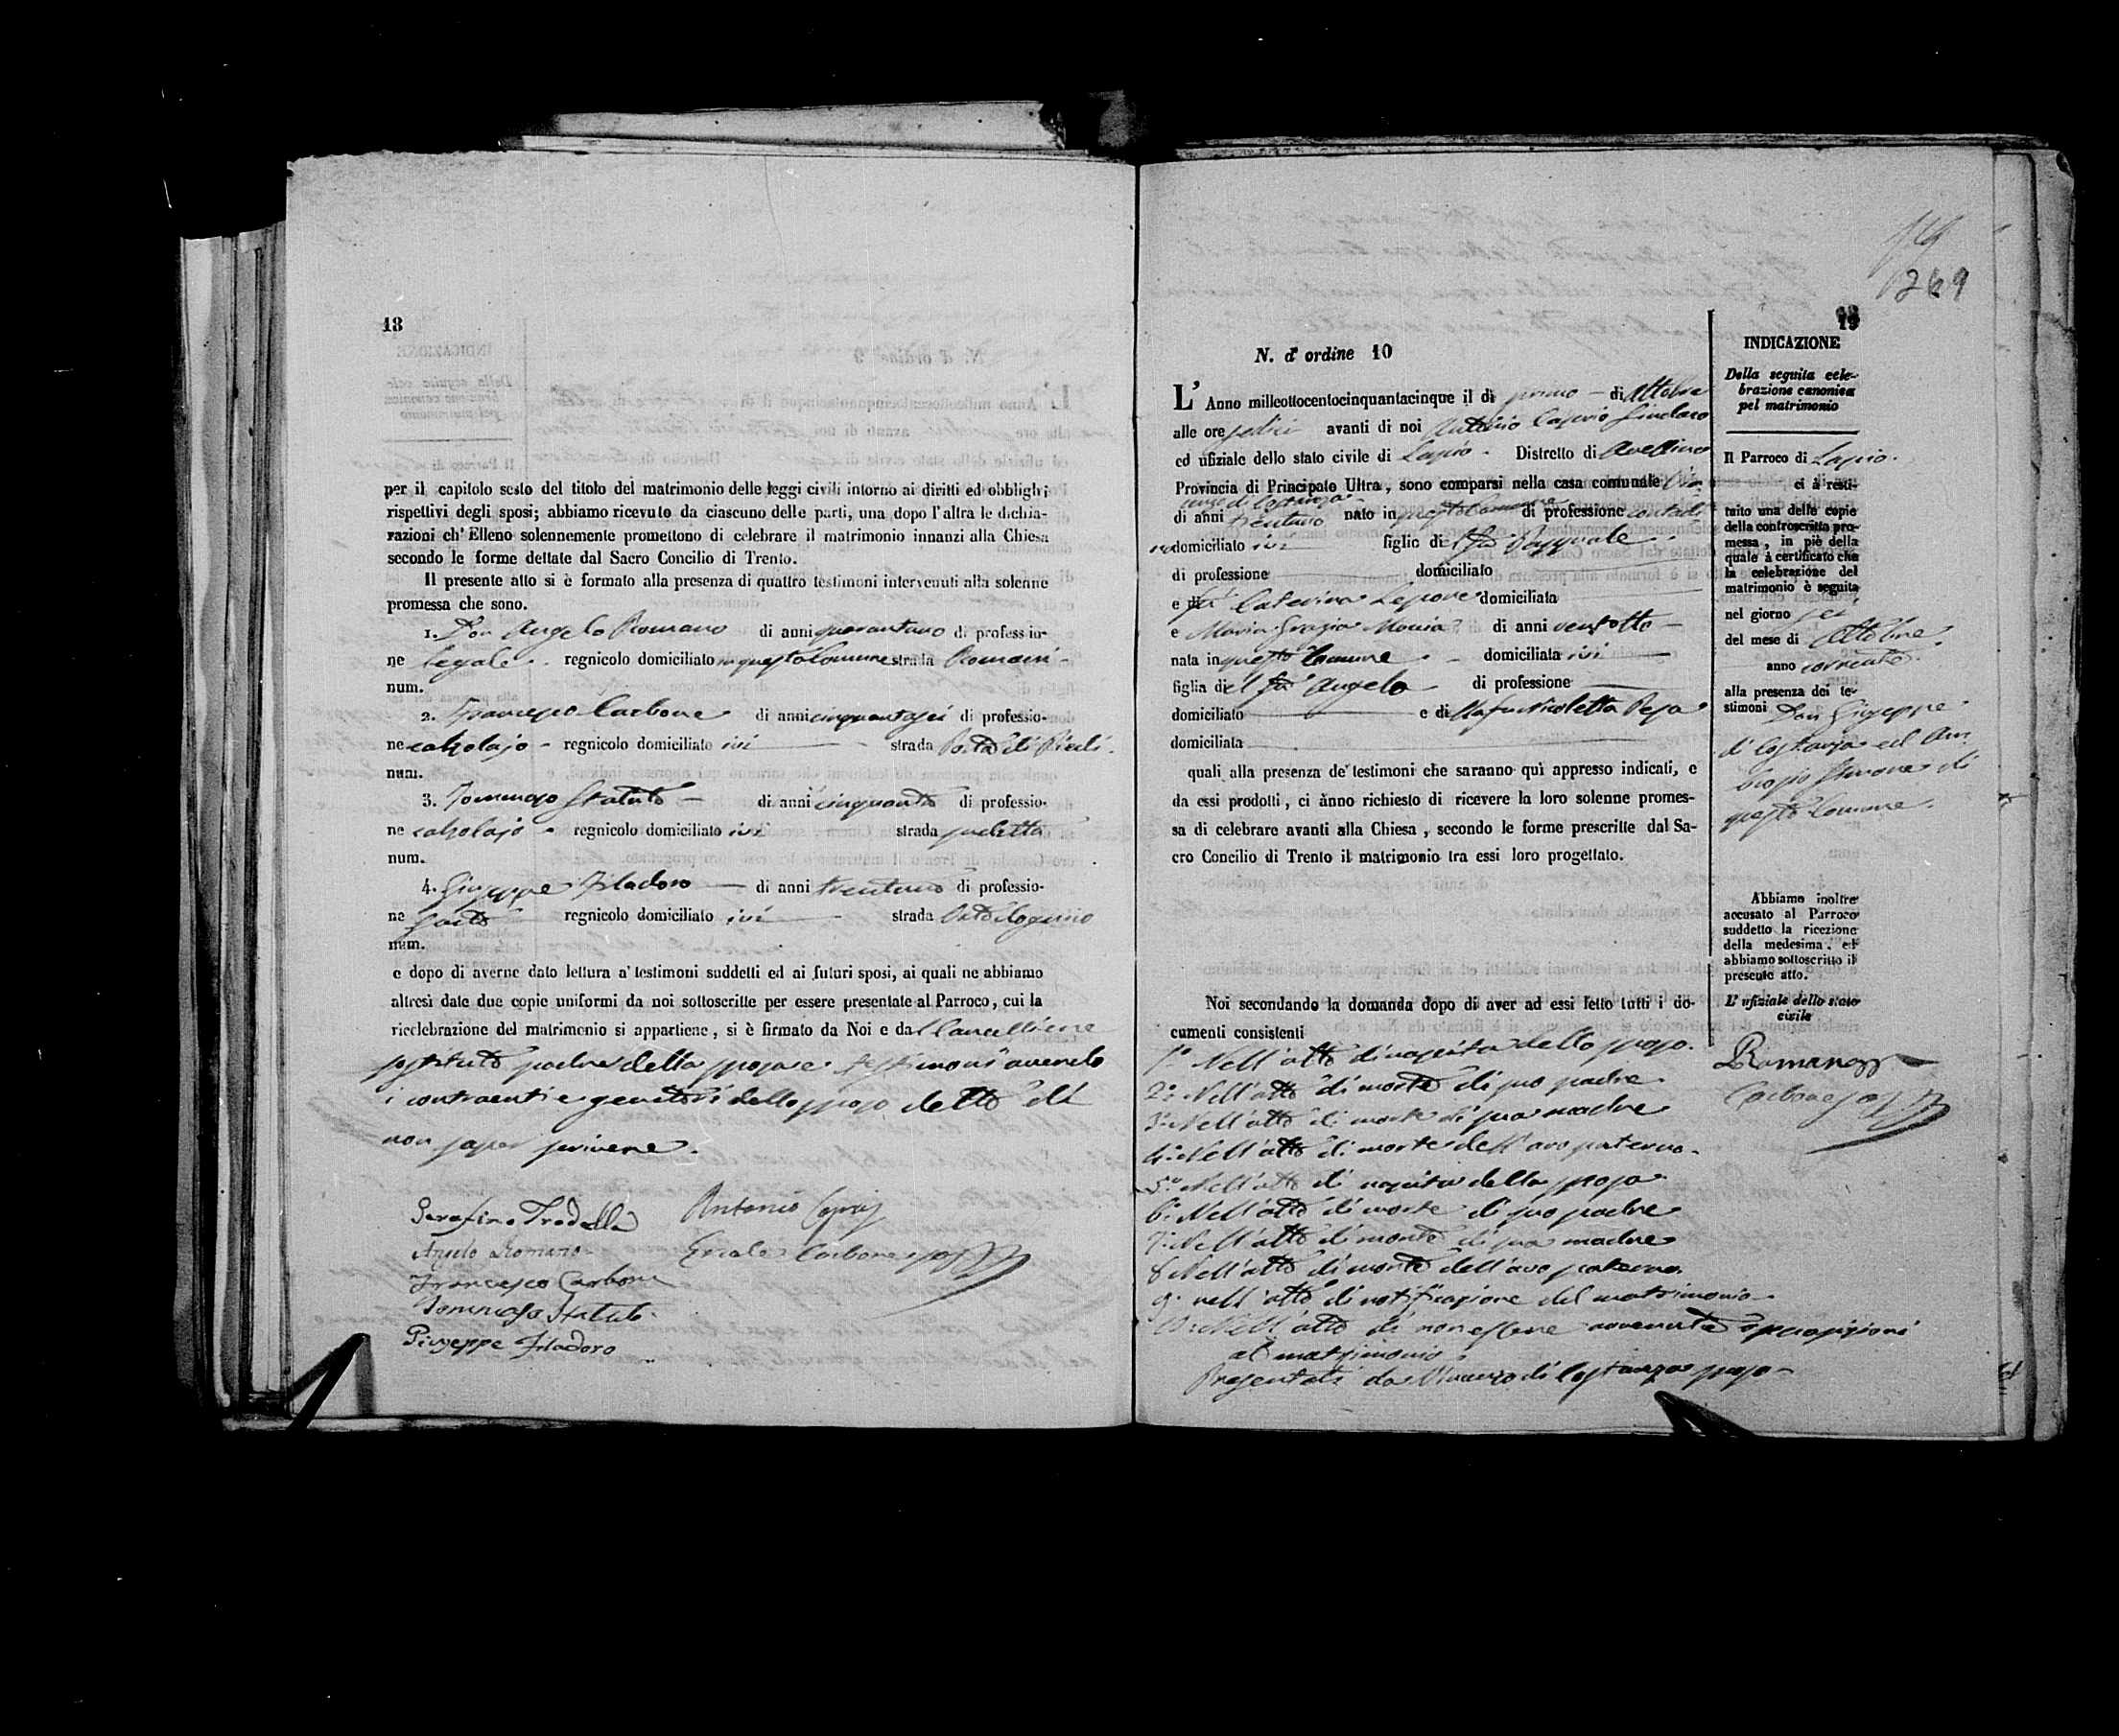 18
per il capitolo sesto del titolo del matrimonio delle leggi civili intorno ai diritti ed obblighi
rispettivi degli sposi; abbiamo ricevuto da ciascuno delle parti, una dopo l'altra le dichia-
razioni ch' Elleno solennemente promettono di celebrare il matrimonio innanzi alla Chiesa
secondo le forme dettate dal Sacro Concilio di Trento.
Il presente atto si è formato alla presenza di quattro testimoni intervenuti alla solenne
promessa che sono.
1. Don Angelo Romano di anni quarantuno di professio-
ne legale regnicolo domiciliato in questo Comune strada Romani
num.
2. Francesco Carbone di anni cinquantasei di professio-
ne calzolajo regnicolo domiciliato ivi strada Porta di Piedi
num.
3. Tommaso Statuto di anni cinquanta di professio-
ne calzolajo regnicolo domiciliato ivi strada
num.
4. Giuseppe Filadoro di anni trentuno di professio-
ne Sarto regnicolo domiciliato ivi strada
num.
e dopo di averne dato lettura a' testimoni suddetti ed ai futuri sposi, ai quali ne abbiamo
altresì date due copie uniformi da noi sottoscritte per essere presentate al Parroco, cui la
ricelebrazione del matrimonio si appartiene, si è firmato da Noi e dal Cancelliere
sostituto padre della sposa e testimoni avendo
i contraenti e genitori dello sposo detto di
non saper scrivere.
Serafino Trodella Antonio Caprio
Angelo Romano Carbone
Francesco Carbone
Tommaso Statuto
Giuseppe Filadoro
269
19
N. d' ordine 10
L' Anno milleottocentocinquantacinque il dì primo di Ottobre
alle ore sedici avanti di noi Antonio Caprio Sindaco
ed ufiziale dello stato civile di Lapio Distretto di Avellino
Provincia di Principato Ultra, sono comparsi nella casa comunale Vin
cenzo di Costanza
di anni trentuno nato in questo Comune di professione contadi
no domiciliato ivi figlio del fu Pasquale
di professione domiciliato
e di fu Caterina Lepore domiciliata
e Maria Grazia di anni ventotto
nata in questo Comune domiciliata ivi
figlia del fu Angelo di professione
domiciliato e di la fu Nicoletta Pepa
domiciliata
quali alla presenza de' testimoni che saranno quì appresso indicati, e
da essi prodotti, ci ànno richiesto di ricevere la loro solenne promes-
sa di celebrare avanti alla Chiesa, secondo le forme prescritte dal Sa-
cro Concilio di Trento il matrimonio tra essi loro progettato.
Noi secondando la domanda dopo di aver ad essi letto tutti i do-
cumenti consistenti
1° Nell'atto di nascita dello sposo.
2° Nell'atto di morte di suo padre
3° Nell'atto di morte di sua madre
4° Nell'atto di morte dell'avo paterno
5° Nell'atto di nascita della sposa
6° Nell'atto di morte di suo padre
7° Nell'atto di morte di sua madre
8 Nell'atto di morte dell'avo paterno
9° nell'atto di notificazione del matrimonio
10° Nell'atto di non essere avvenute opposizioni
al matrimonio
Presentati da Vincenzo di Costanza sposo
INDICAZIONE
Della seguita cele-
brazione canonica
pel matrimonio
Il Parroco di Lapio
ci à resti-
tuito una delle copie
della controscritta pro-
messa, in piè della
quale à certificato che
la celebrazione del
matrimonio è seguita
nel giorno sei
del mese di Ottobre
anno corrente
alla presenza dei te-
stimoni Don Giuseppe
di Costanza ed Am
brogio Simone di
questo Comune.
Abbiamo inoltre
accusato al Parroco
suddetto la ricezione
della medesima, ed
abbiamo sottoscritto il
presente atto.
L' ufiziale dello stato
civile
Carbone